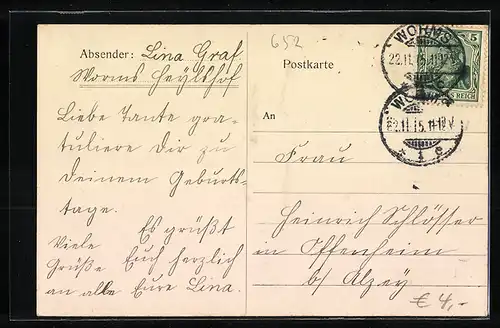 652
Absender: Lina Graf
Worms Heylshof
Liebe Tante gra-
tuliere Dir zu
Deinem Geburts-
tage.
Es grüßt
Viele Euch herzlich
Grüße
an alle Eure Lina.
Postkarte
An
Frau
Heinrich Schlösser
in Offenheim
b/ Alzey
€ 4,-
5
S REICH
WORMS
22.11.15.11-12V.
22.11.15.11-12V.
* 1 e